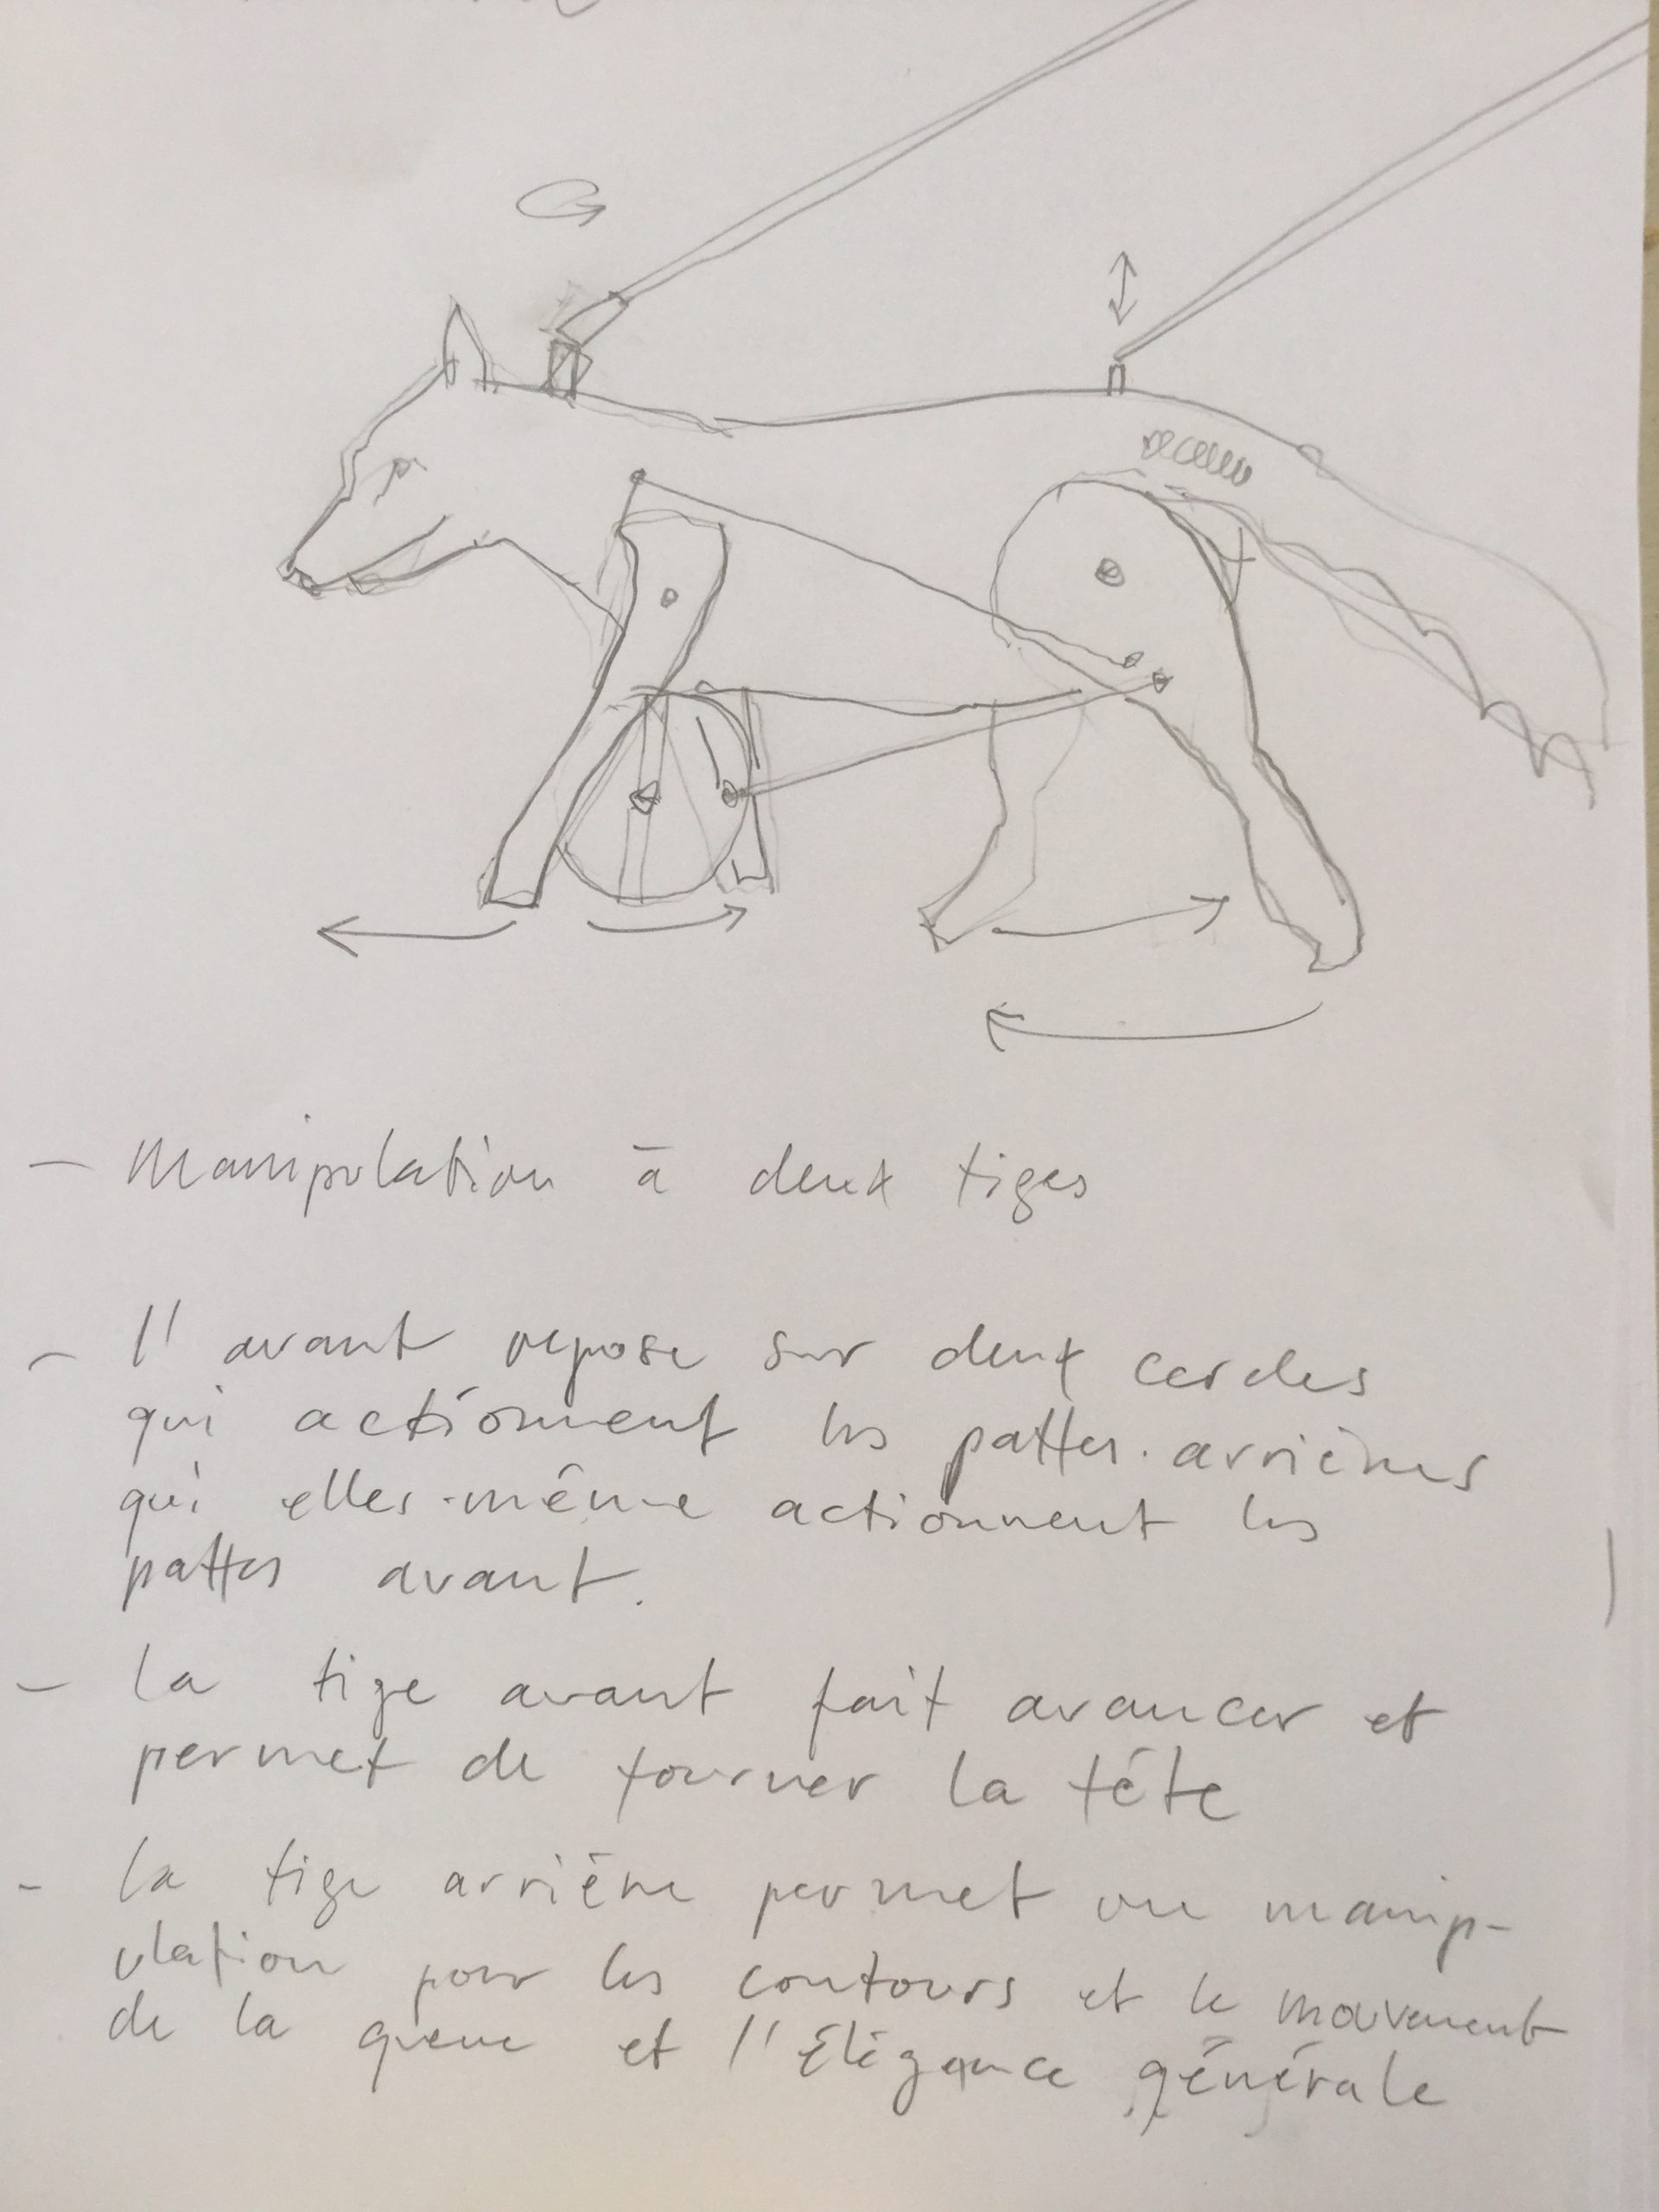 - Manipulation à deux tiges
- l'avant repose sur deux cercles
qui actionnent les pattes-arrières
qui elles-même actionnent les
pattes avant.
- la tige avant fait avancer et
permet de tourner la tête
- la tige arrière permet une manip-
ulation pour les contours et le mouvement
de la queue et l'élégance générale